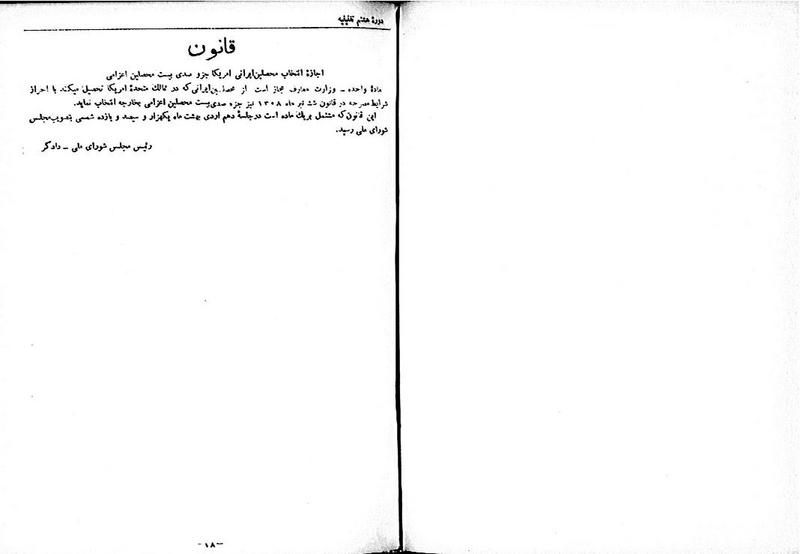 دورهٔ هفتم تقنینیه
قانون
اجازهٔ انتخاب محصلین ایرانی امریکا جزو صدی بیست محصلین اعزامی
مادهٔ واحده ـ وزارت معارف مجاز است از محصلین ایرانی که در ممالک متحدهٔ امریکا تحصیل میکنند با احراز
شرایط مصرحه در قانون شش تیر ماه ۱۳۰۸ نیز جزء صدی بیست محصلین اعزامی بخارجه انتخاب نماید.
این قانون که مشتمل بریک ماده است در جلسهٔ دهم اردی بهشت ماه یکهزار و سیصد و یازده شمسی بتصویب مجلس
شورای ملی رسید.
رئیس مجلس شورای ملی ـ دادگر
-۱۸-